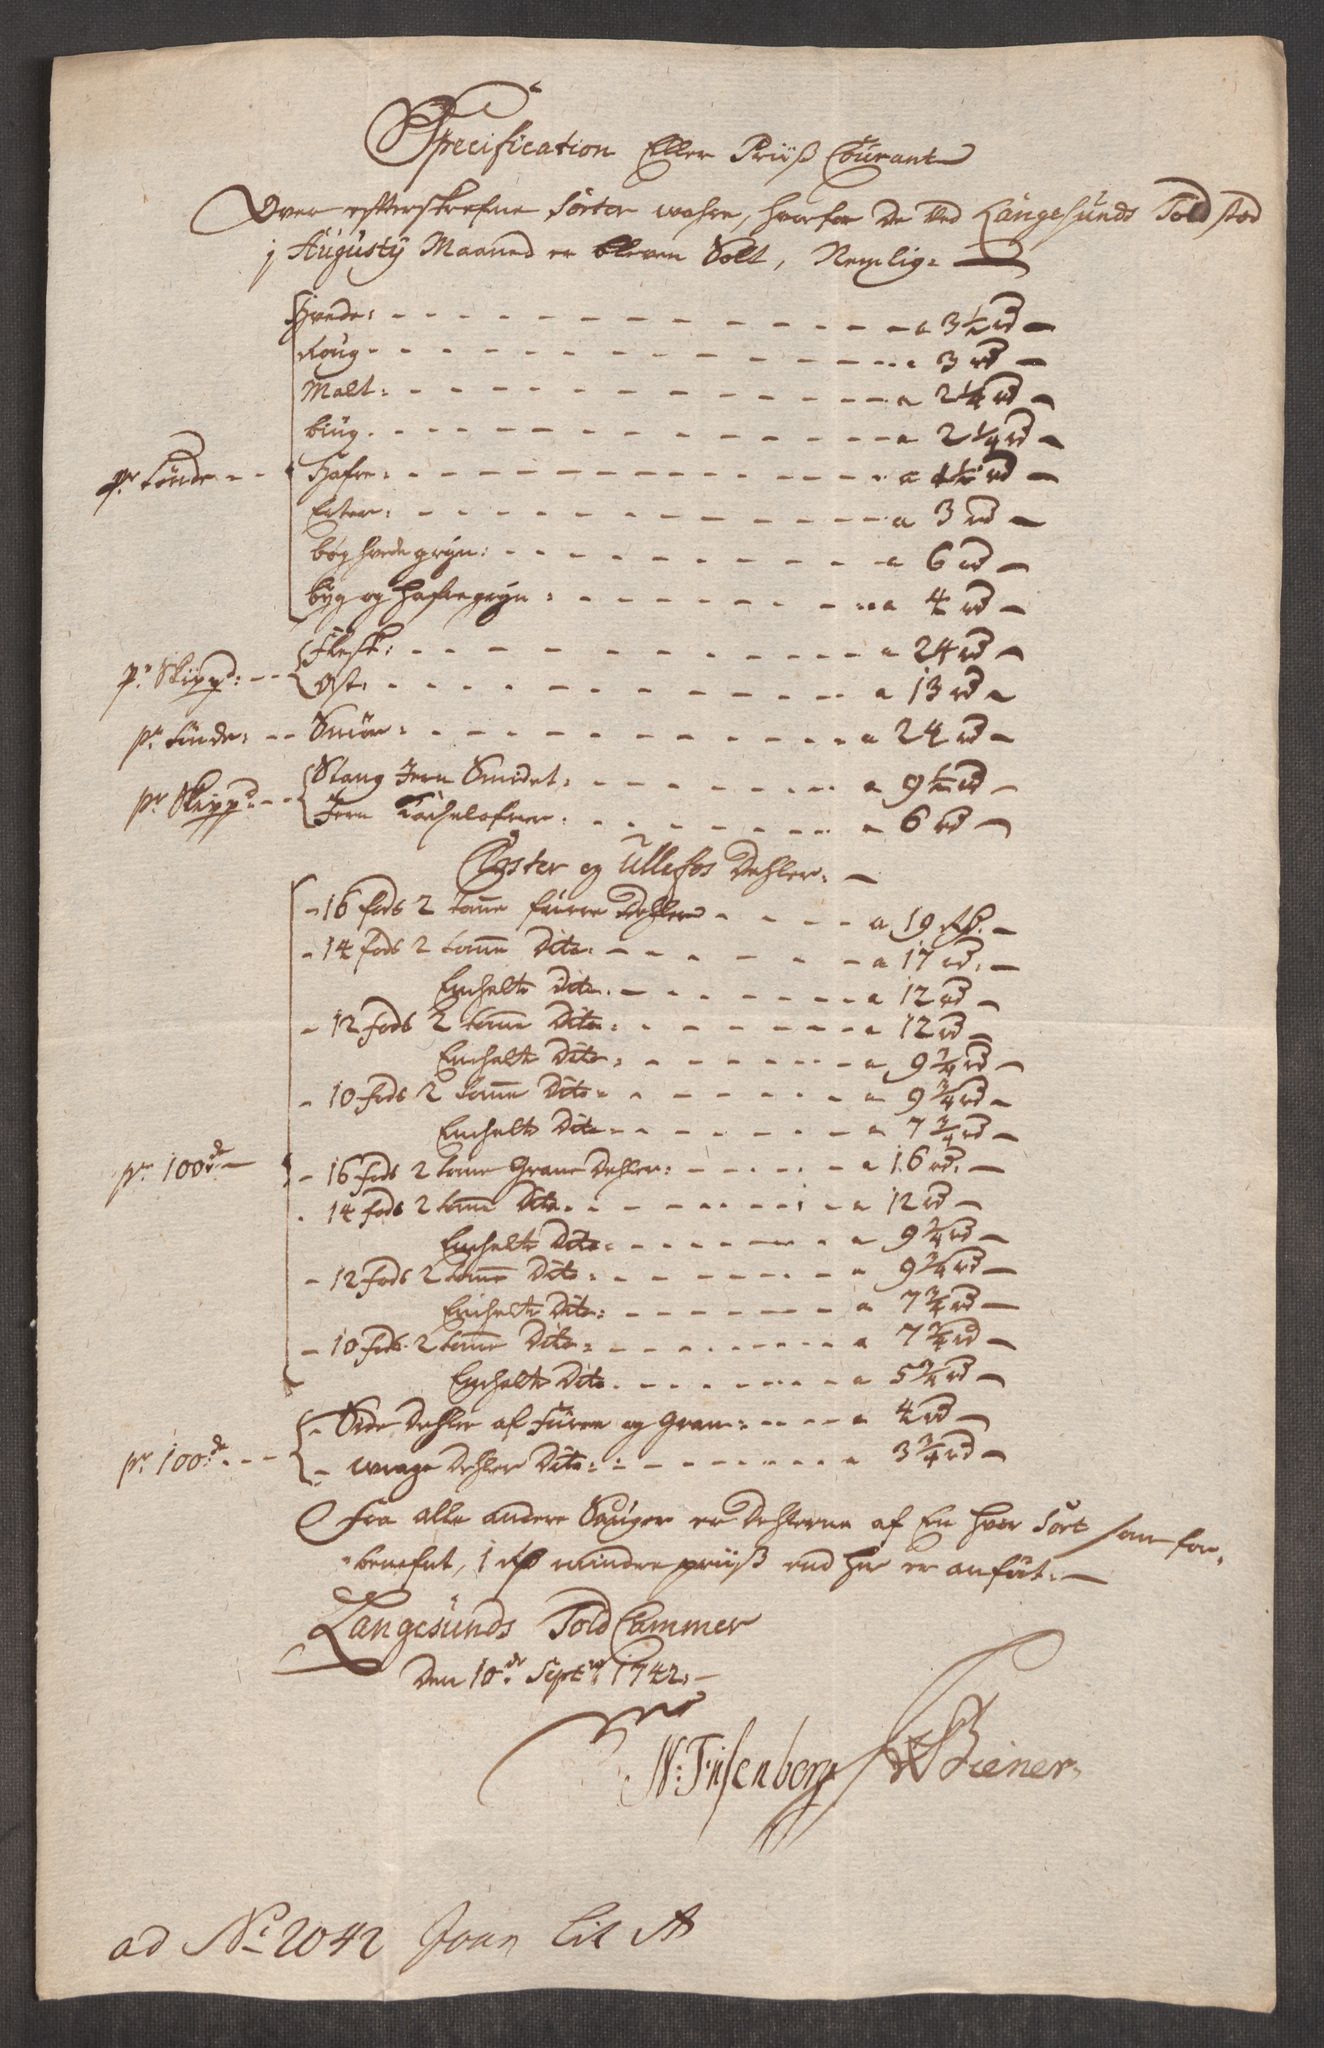 Specification Eller Priiß Courant
Over efterskrefne Sorter wahre, hvorfor de ved Langesunds Told stæd
j Augustij Maaned er bleven Solt, Nemlig:
Hvede: a 3½ rd
Roug a 3 rd
Malt: a 2¼ rd
biug a 2¼ rd
pr Tönde Hafre: a 1½ rd
Erter: a 3 rd
boghvede gryn: a 6 rd
byg og hafregryn: a 4 rd
pr Skippd: Flesk: a 24 rd
Ost: a 13 rd
pr Tünde: Smör: a 24 rd
pr Skippd: Stang Jern Smidet: a 9½ rd
Jern Kachelofner: a 6 rd
Closter og Ullefos Dehler:
16 fods 2 tomme furre Dehler a 19 Rd.
14 fods 2 tomme Dito a 17 rd:
Enchelte Dito a 12 rd
12 fods 2 tomme Dito: a 12 rd
Enchelte Dito: a 9¾ rd
10 fods 2 tomme Dito: a 9¾ rd
Enchelte Dito a 7¾ rd
pr 100de 16 fods 2 tomme Grane Dehler: a 16 rd:
14 fods 2 tomme Dito a 12 rd
Enchelte Dito: a 9¾ rd
12 fods 2 tomme Dito: a 9¾ rd
Enchelte Dito: a 7¾ rd
10 fods 2 tomme Dito: a 7¾ rd
Enchelte Dito a 5¾ rd
pr 100de Side Dehler af Furre og Gran: a 4 rd
wrage Dehler Dito: a 3¾ rd
Fra alle andre Sauger er Dehlerne af En hver Sort som for,
benefnt, 1 Rd mindre priiß end her er anført.
Langesunds Told Cammer
Den 10de Septr 1742:
N: Tillenberg Biener
ad No 2042 Joan Lit A